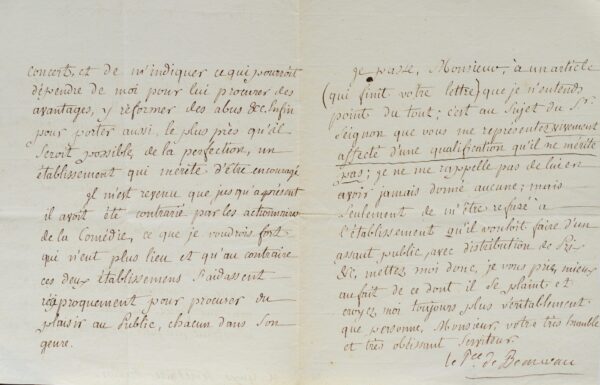 concert, et de m'indiquer ce qui pourroit
dépendre de moi pour lui procurer des
avantages, y réformer des abus &c. Enfin
pour porter aussi, le plus près qu'il
seroit possible, de la perfection, un
établissement qui mérite d'être encouragé
Il m'est revenu que jusqu'à présent
il avoit été contrarié par les actionnaires
de la Comédie, ce que je voudrois fort
qui n'eut plus lieu et qu'au contraire
ces deux établissemens s'aidassent
réciproquement pour procurer du
plaisir au Public, chacun dans son
genre.
je passe, Monsieur, à un article
(qui finit votre lettre) que je n'entends
point du tout; c'est au Sujet du Sr.
Seignon que vous me représentez vivement
affecté d'une qualification qu'il ne mérite
pas; je ne me rappelle pas de lui en
avoir jamais donné aucune; mais
seulement de m'être refusé à
l'établissement qu'il vouloit faire d'un
assaut public avec distribution de Prix
&c, mettez moi donc, je vous prie, mieux
au fait de ce dont il se plaint et
croyez moi toujours plus véritablement
que personne, Monsieur, votre très humble
et très obéissant Serviteur.
le Pce. de Beauvau